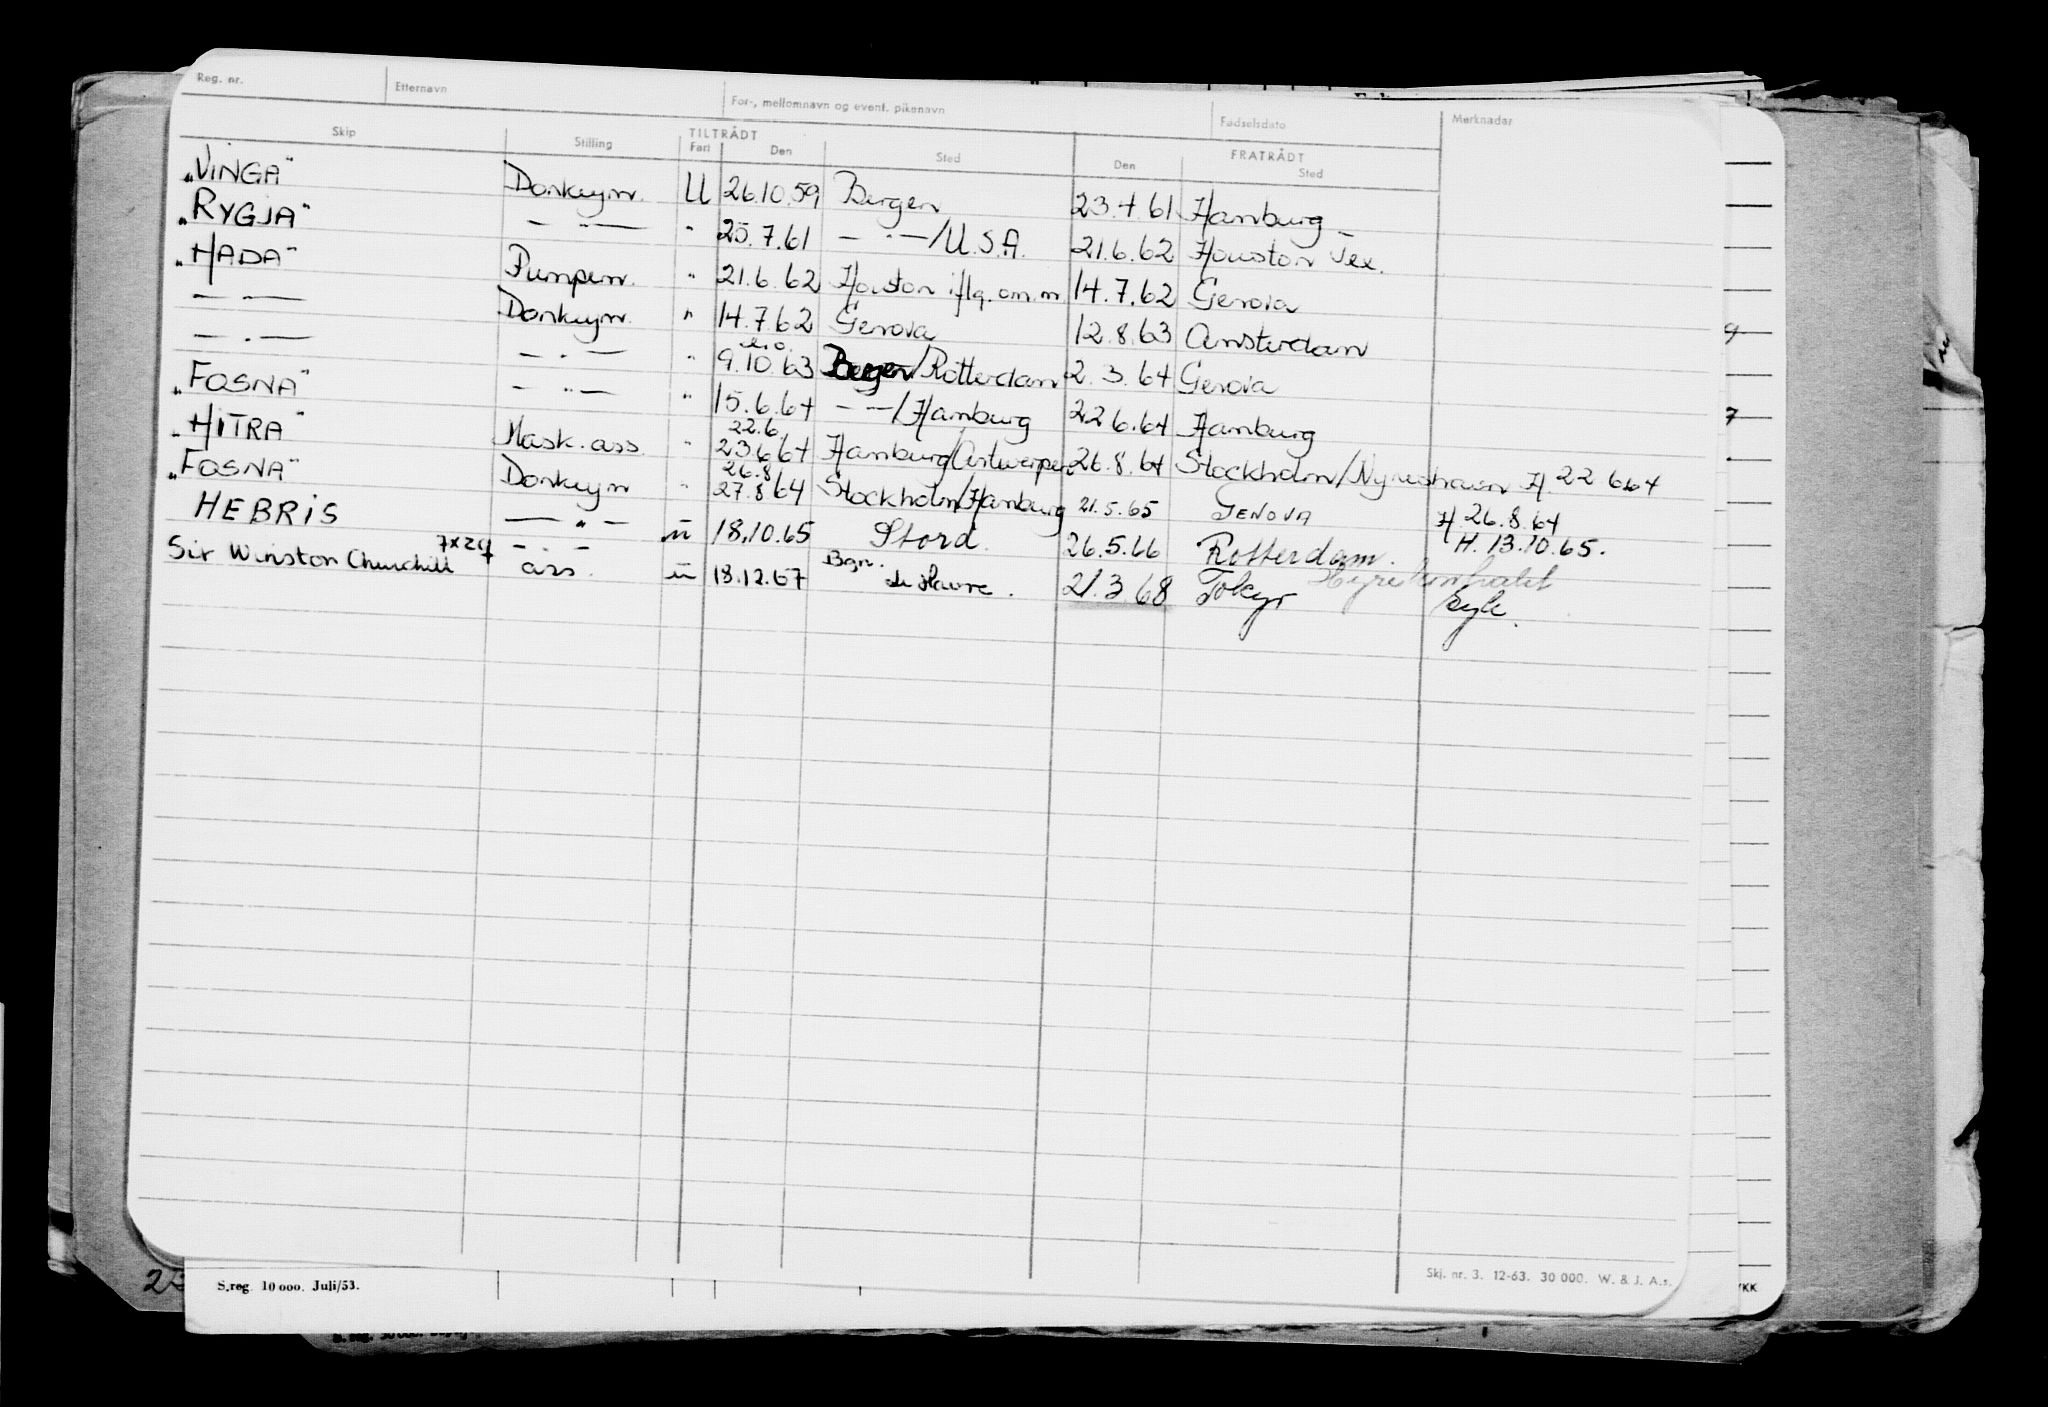 Reg. nr. Etternavn For-, mellomnavn og event. pikenavn Fødselsdato Merknader
TILTRÅDT FRATRÅDT
Skip Stilling Fart Den Sted Den Sted
„VINGA" Donkeym. U 26.10.59 Bergen 23.4.61 Hamburg
„RYGJA" — " — " 25.7.61 — " —/U.S.A. 21.6.62 Houston Tex.
„HADA" Pumpem. " 21.6.62 Houston iflg. om.m. 14.7.62 Genova
— " — Donkeym. " 14.7.62 Genova 12.8.63 Amsterdam
— " — — " — " 9.10.63 Bergen/Rotterdam 2.3.64 Genova
„FOSNA" — " — " 15.6.64 — " —/Hamburg 22.6.64 Hamburg
22.6.
„HITRA" Mask.ass. " 23.6.64 Hamburg/Antwerpen 26.8.64 Stockholm/Nynäshamn H. 22.6.64
26.8
„FOSNA" Donkeym " 27.8.64 Stockholm/Hamburg 21.5.65 GENOVA H. 26.8.64
HEBRIS — " — u 18.10.65 Stord. 26.5.66 Rotterdam. H. 13.10.65.
7x24 — " — Bgn. Hyrekontrakt
Sir Winston Churchill ass. u 18.12.67 Le Havre. 21.3.68 Tokyo syk.
Skj. nr. 3. 12-63. 30 000. W. & J. A.s.
S.reg. 10 000. Juli/53.